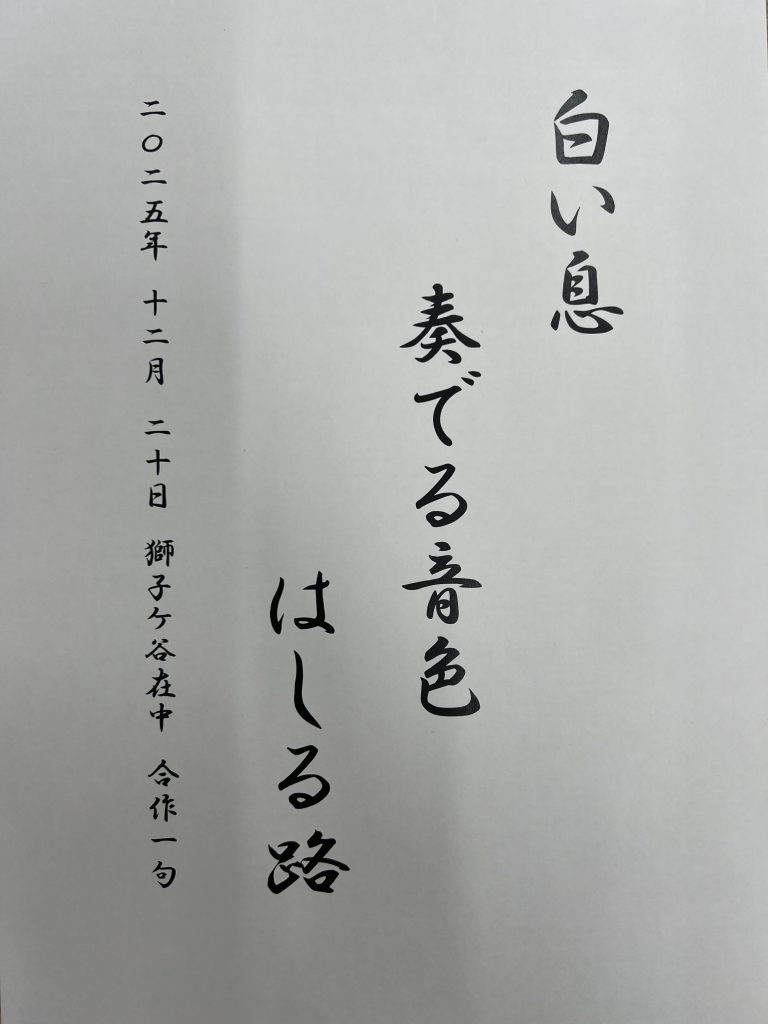 白い息
奏でる音色
はしる路
二〇二五年 十二月 二十日 獅子ケ谷在中 合作一句